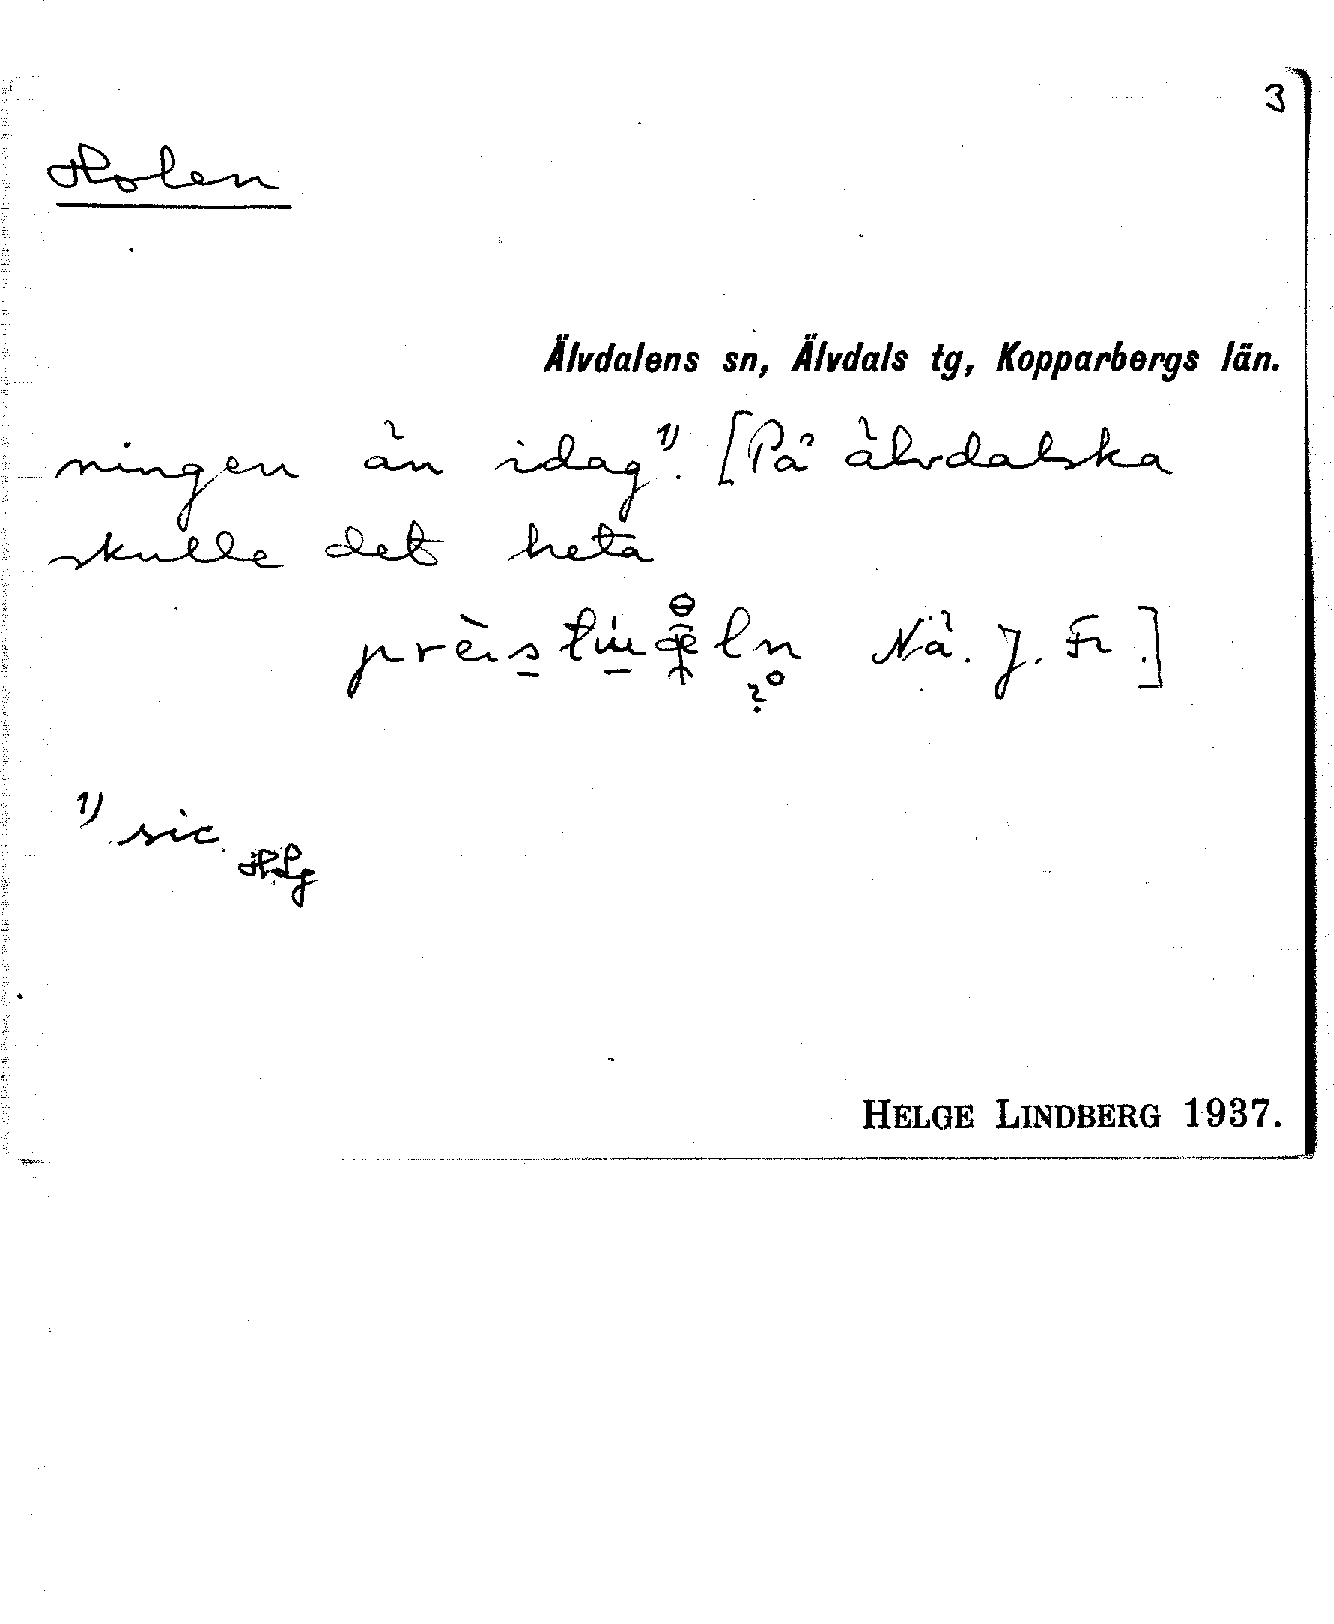 3
Holen
Älvdalens sn, Älvdals tg, Kopparbergs län.
ningen än idag¹⁾. [På älvdalska
skulle det heta
Nä. J. Fr.]
¹⁾ sic. HLg
HELGE LINDBERG 1937.